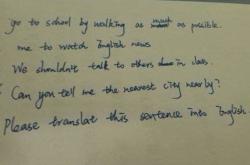 go to school by walking as much as possible.
me to watch English news
We shouldn't talk to others in class.
Can you tell me the nearest city nearby?
Please translate this sentence into English